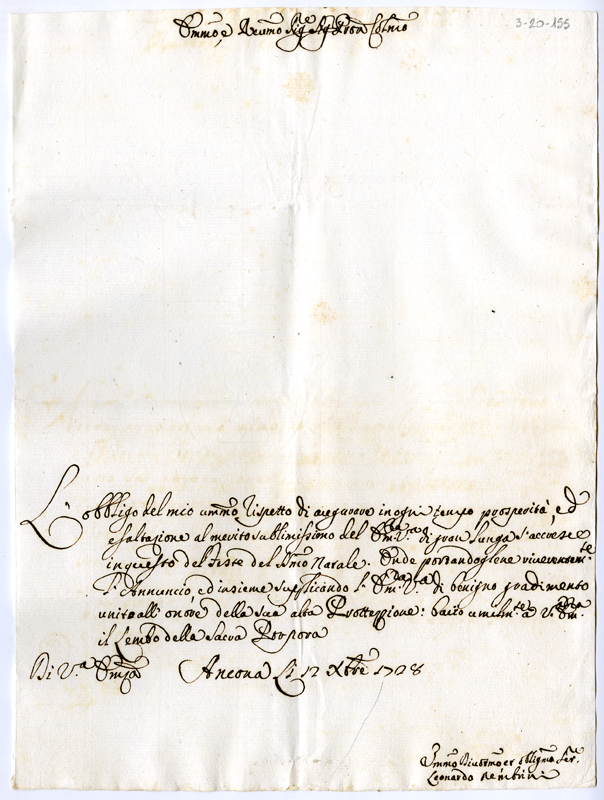 3-20-155
Emmo, e Revmo Sig.e Sig. Prõn Colmo
L'obbligo del mio ummo rispetto di augurare in ogni tempo prosperità, ed
esaltazione al merito sublimissimo dell' Em.za V.a di gran lunga s'accresce
in questo del Feste del SSmo Natale. Onde portandogliene riverentem.te
l'Annuncio, ed insieme supplicando l'Em.za V.a di benigno gradimento
unito all'onore della sua alta Protteggione: bacio umilm.te a V. Em.za
il Lembo della Sacra Porpora
Di V.a Emza Ancona li 12 Xbre 1728
Ummo Divotmo et obligmo Ser.re
Leonardo